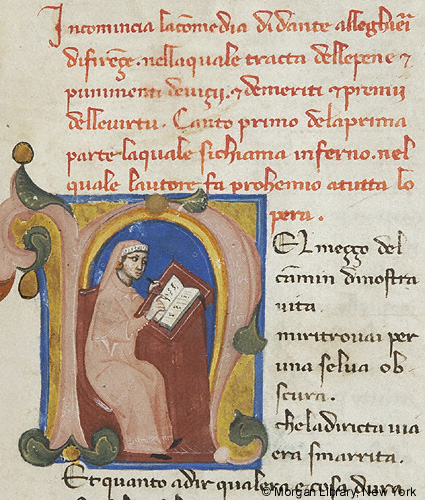 Incomincia lacomedia di dante alleghieri
difirēçe. nellaquale tracta dellepene ⁊
punimenti deuiçij. ⁊ demeriti ⁊ premij
delleuirtu. Canto primo delaprima
parte laquale sichiama inferno. nel
quale lautore fa prohemio atutta lo
pera.
NEl meçço del
cāmin dinostra
uita.
miritrouai per
una selua ob
scura.
cheladiricta uia
era smarrita.
Et quanto adir qualera e cosa dura
© Morgan Library, New York